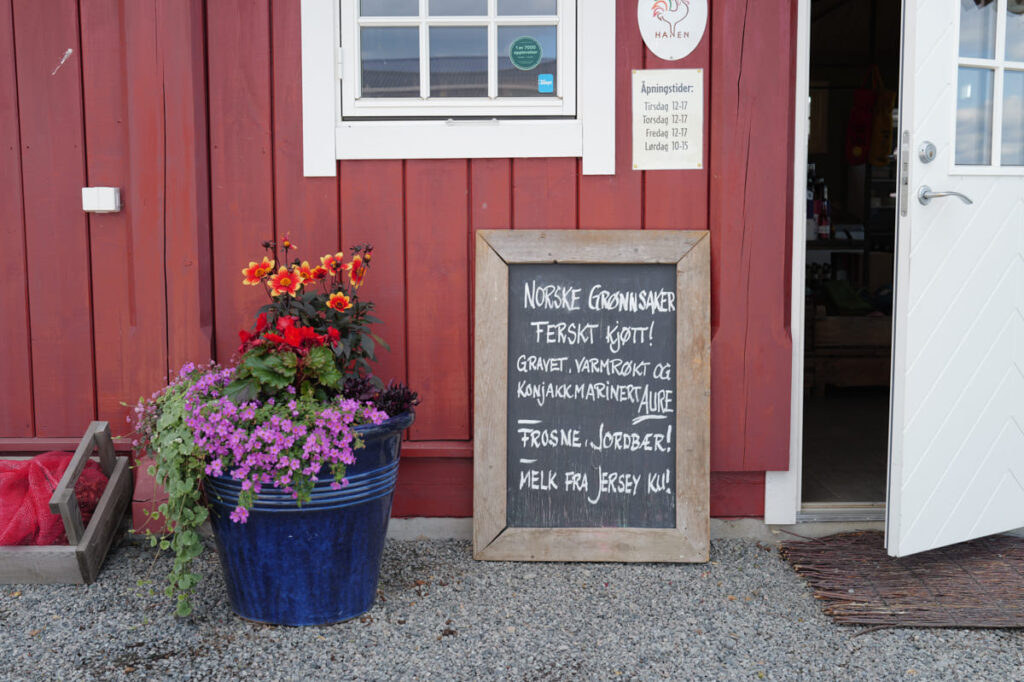 1 av 7000
opplevelser
HANEN
Åpningstider:
Tirsdag 12-17
Torsdag 12-17
Fredag 12-17
Lørdag 10-15
NORSKE GRØNNSAKER
FERSKT KJØTT!
GRAVET, VARMRØKT OG
KONJAKKMARINERT AURE
FROSNE, JORDBÆR!
MELK FRA JERSEY KU!